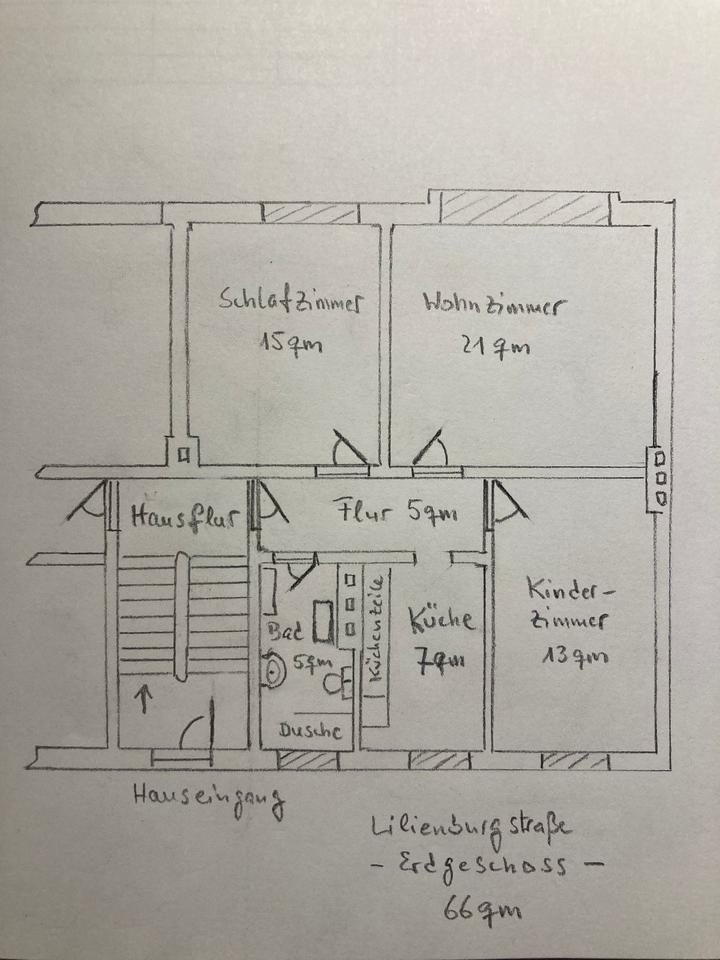 Schlafzimmer
15qm
Wohnzimmer
21 qm
Hausflur
Flur 5qm
Bad
5qm
Dusche
Küchenteile
Küche
7qm
Kinder-
zimmer
13qm
Hauseingang
Lilienburgstraße
- Erdgeschoss -
66qm